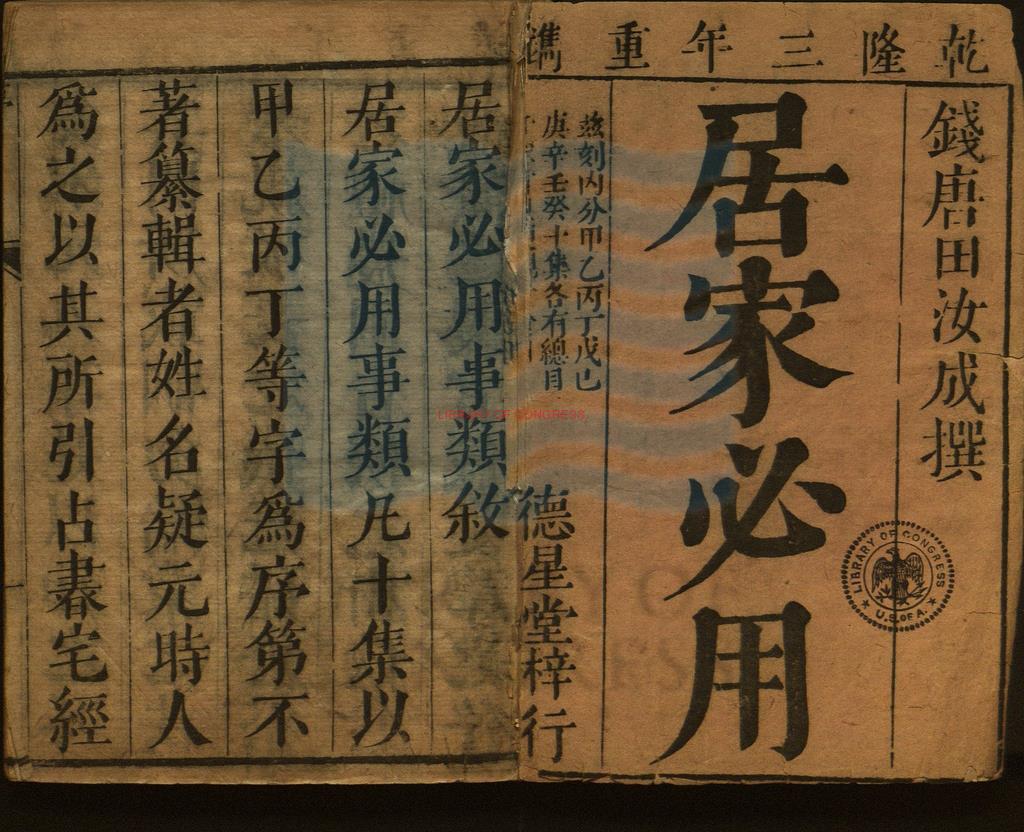 乾隆三年重鐫
錢唐田汝成撰
居家必用
玆刻內分甲乙丙丁戊己
庚辛壬癸十集各有總目
德星堂梓行
居家必用事類敘
居家必用事類凡十集以
甲乙丙丁等字爲序第不
著纂輯者姓名疑元時人
爲之以其所引占書宅經
LIBRARY OF CONGRESS
LIBRARY OF CONGRESS
U.S. OF A.